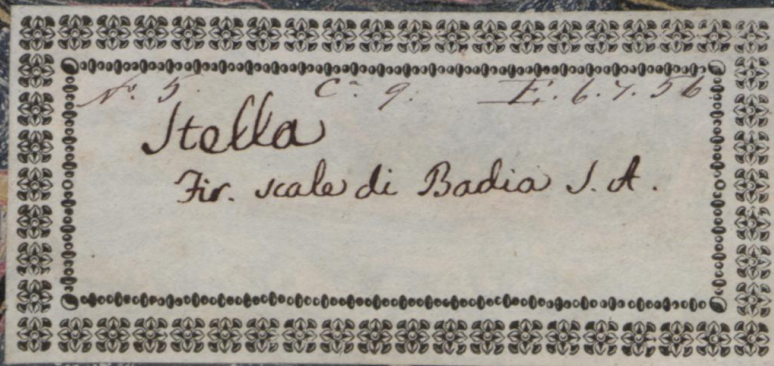 No. 5. Ca 9. E. 6. 7. 56
Stella
Fir. scale di Badia S. A.